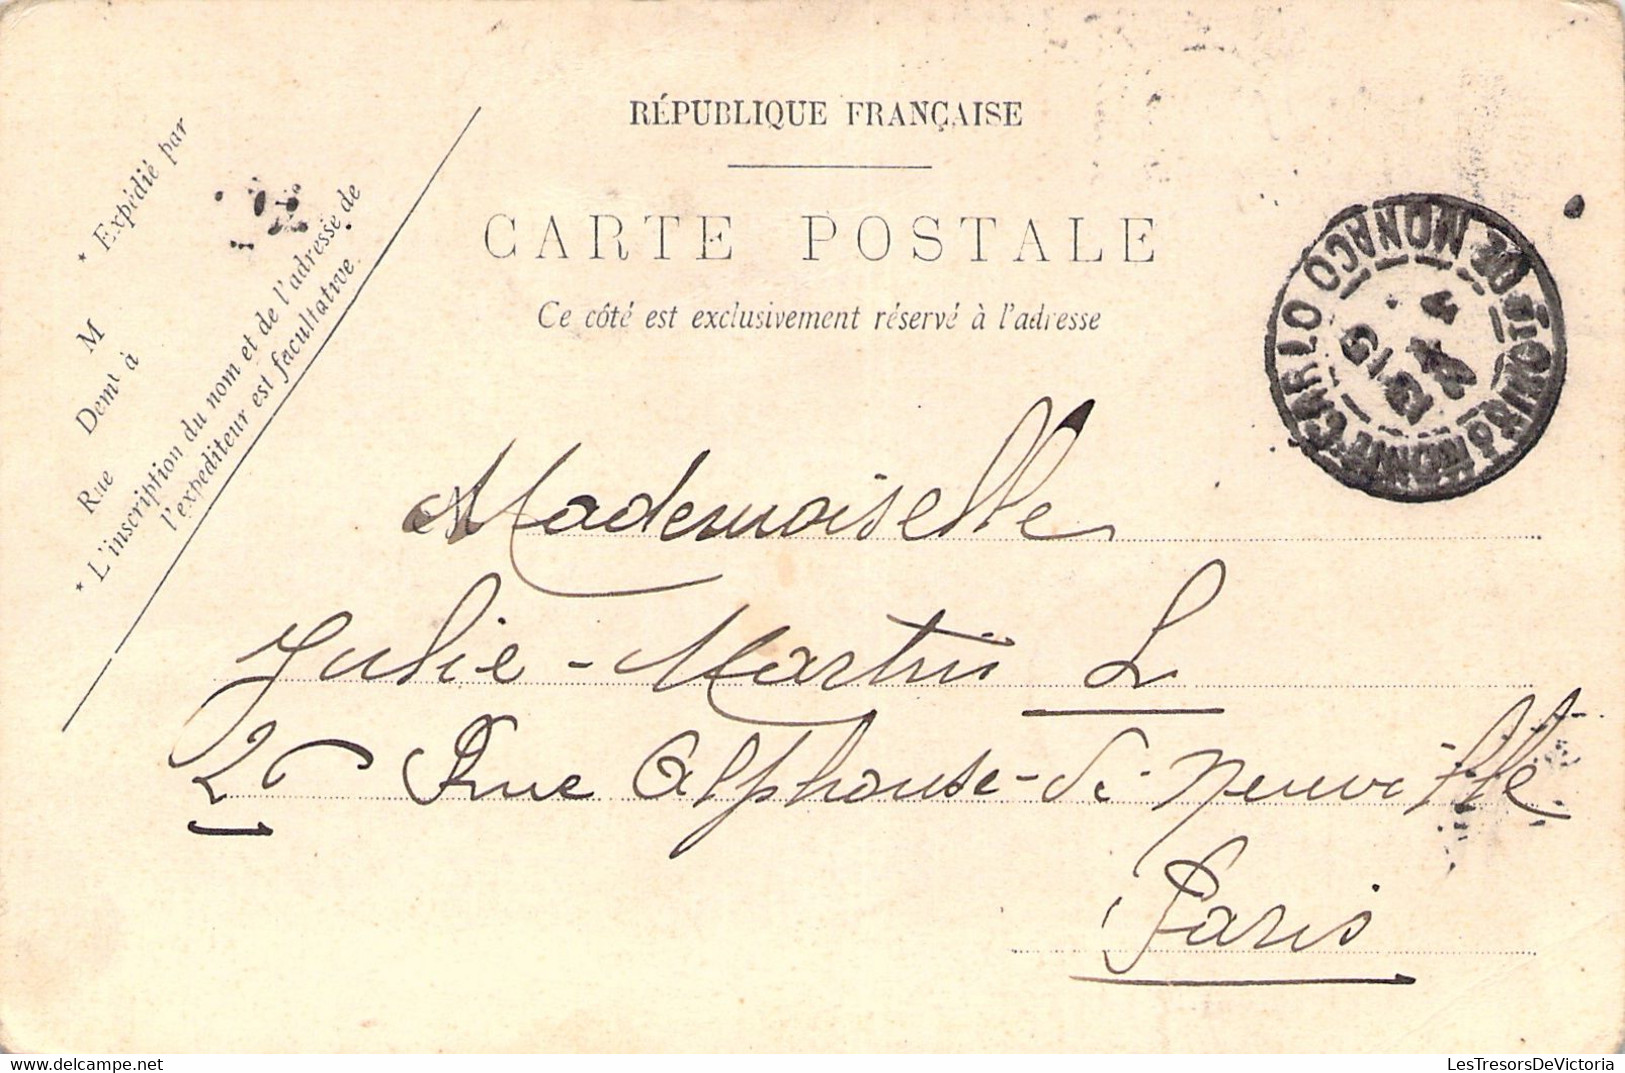 RÉPUBLIQUE FRANÇAISE
CARTE POSTALE
Ce côté est exclusivement réservé à l'adresse
* Expédié par
M
Demt à
Rue
* L'inscription du nom et de l'adresse de
l'expéditeur est facultative.
MONTE-CARLO MONACO
Mademoiselle
Julie-Martin L
Rue Alphonse-de-Neuville
Paris
LesTresorsDeVictoria